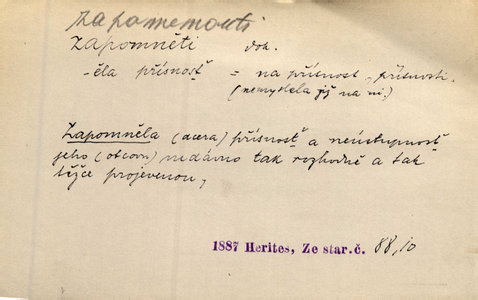 zapomenouti
zapomněti dok.
-ěla přísnosť = na přísnost, přísnosti.
(nemyslela již na ni.)
Zapomněla (dcera) přísnosť a neústupnosť
jeho (otcovu) nedávno tak rozhodně a tak
těžce projevenou,
1887 Herites, Ze star. č. 88,10